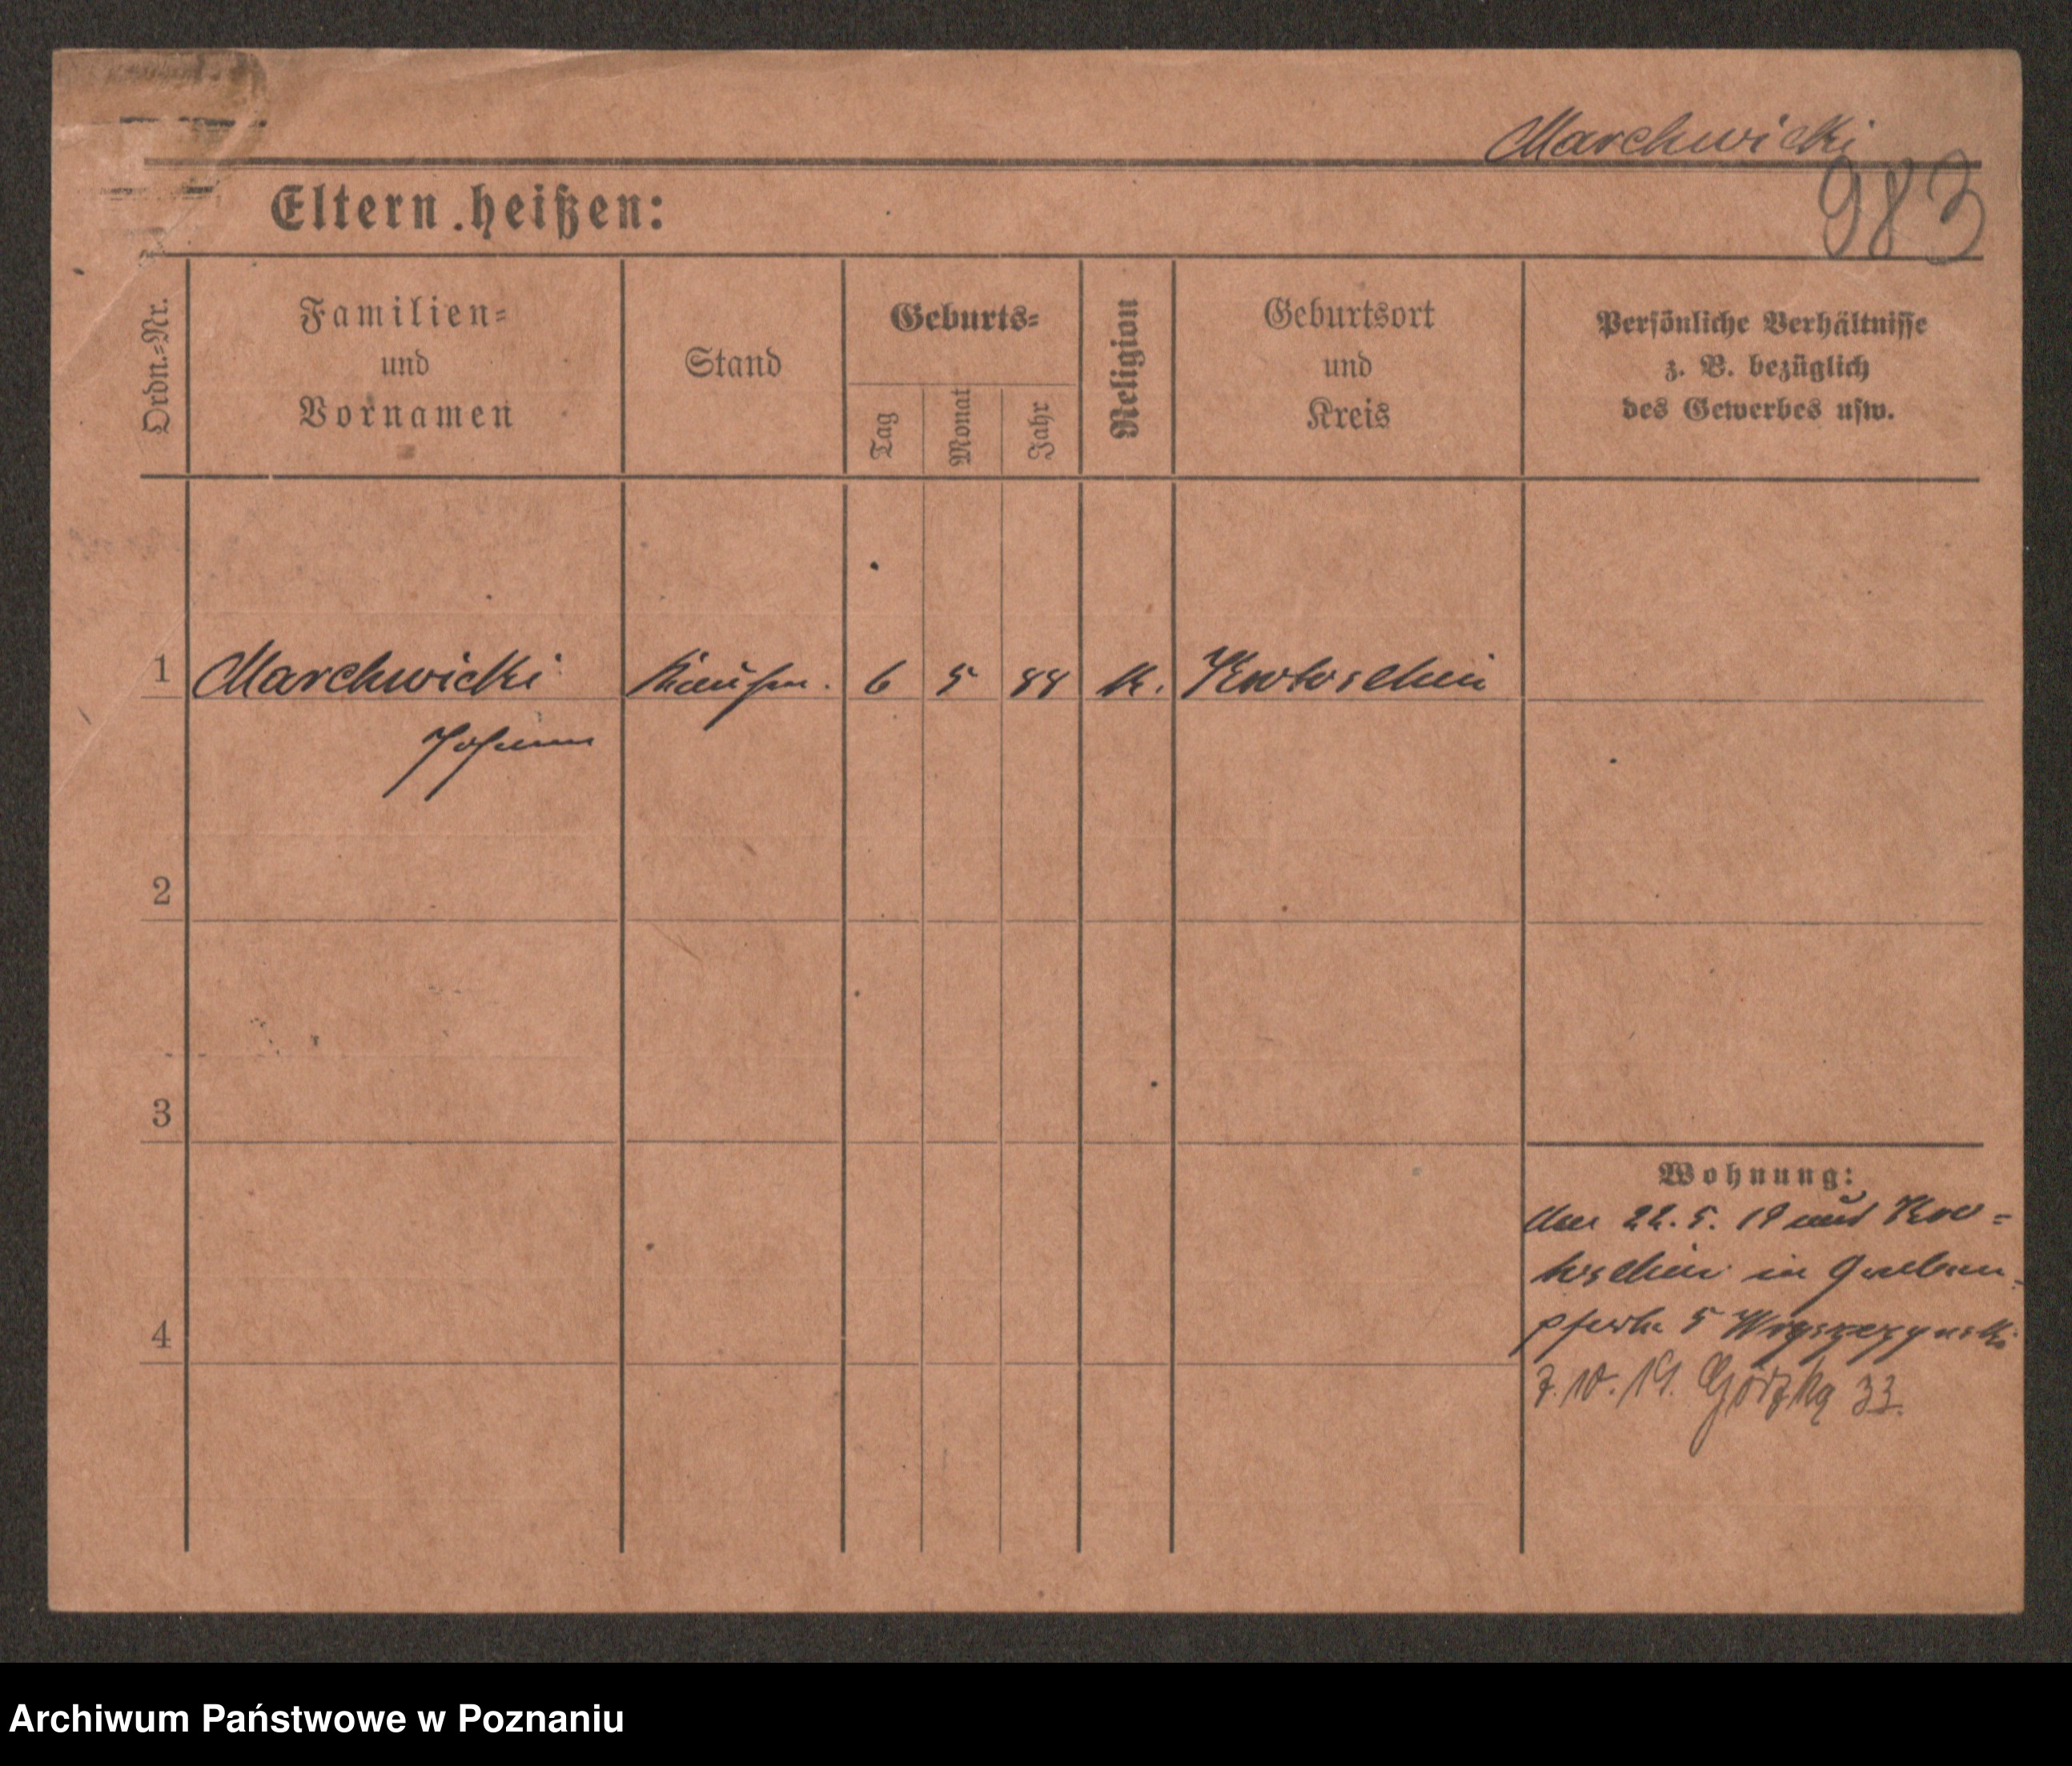 Marchwicki
983
Eltern heißen:
Ordn.-Nr.
Familien-
und
Vornamen
Stand
Geburts-
Tag
Monat
Jahr
Religion
Geburtsort
und
Kreis
Persönliche Verhältnisse
z. B. bezüglich
des Gewerbes usw.
1 Marchwicki Kaufm. 6 5 88 k. Krotoschin
Johann
2
3
4
Wohnung:
22. 5. 19 aus Kro-
toschin in Graben-
5
7. 10. 19. 33.
Archiwum Państwowe w Poznaniu